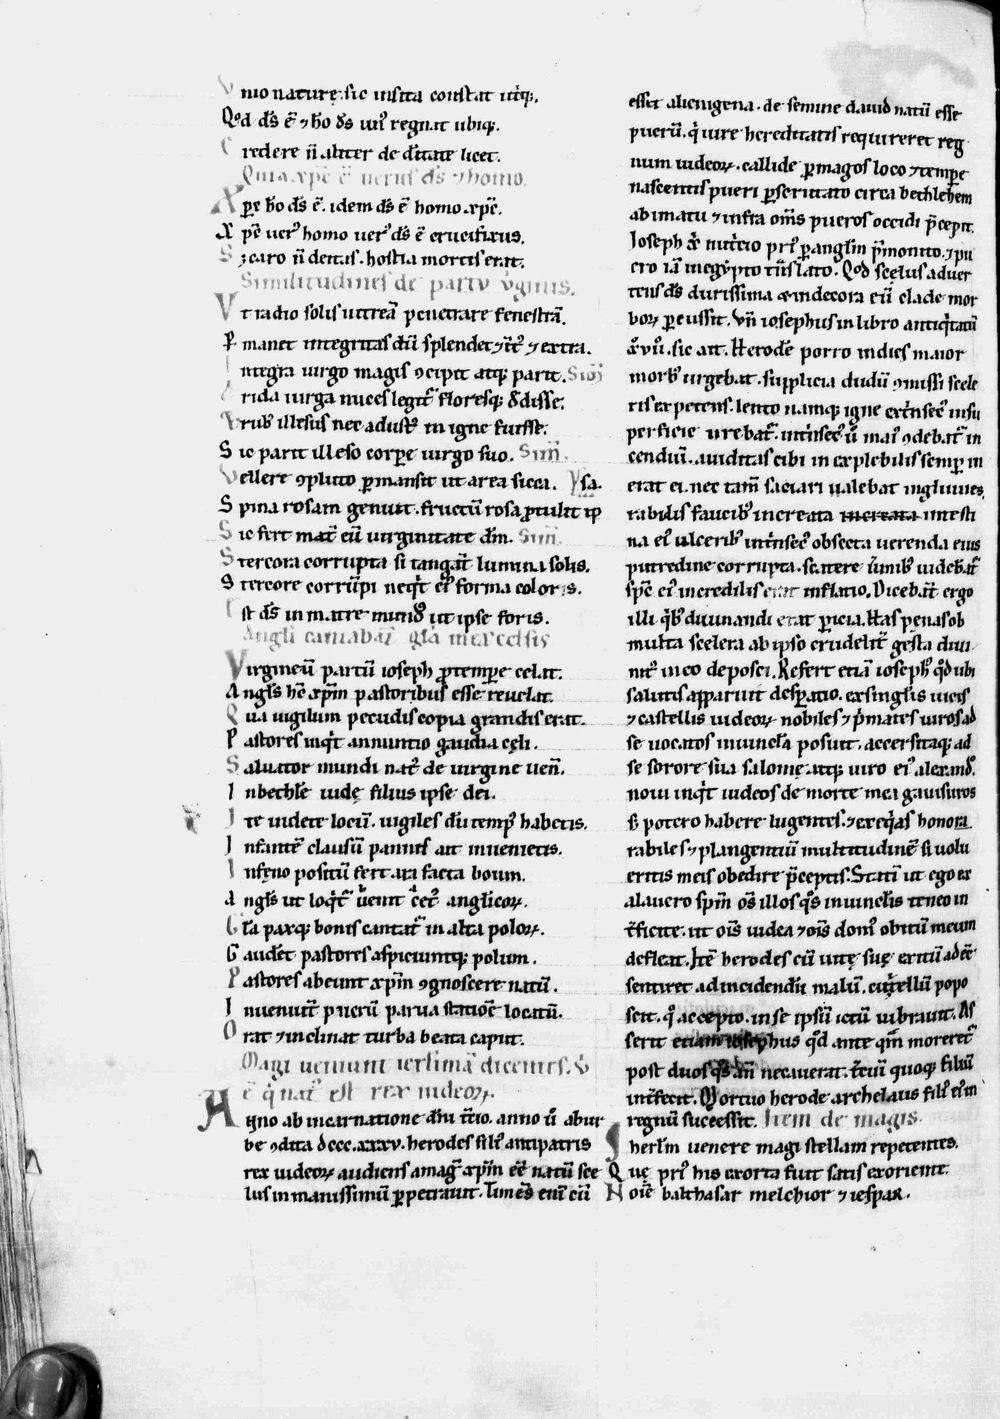 Vnio naturę. sic insita constat utq̃;.
Qd̃ dš ẽ ⁊ hõ dš un᷒ regnat ubiq;.
Credere ñ aliter de d̃itate licet.
Quia xp̃c ẽ uerus dš ⁊ homo.
Xpc̃ hõ dš ẽ. idem dš ẽ homo xpc̃.
Xpc̃ uer᷒ homo uer᷒ dš ẽ crucifixus.
S; caro ñ deitas. hostia mortis erat.
Similitudines de partu ỹginis.
Vt radio solis uitreã penetrare fenestrã.
Pmanet integritas dũ splendet ⁊ ĩt᷒ ⁊ extra.
Integra uirgo magis ꝯcipit atq; parit. Sim̃
Arida uirga nuces legit᷒ floresq; dedisse.
Vrub᷒ illesus nec adust᷒ in igne fuisse.
Sic parit illeso corpe uirgo suo. Sim̃.
Vellere ꝯpluto ꝑmansit ut area sicca. ysa.
Spina rosam genuit. fructũ rosa ꝓtulit ip
Sic fert mat᷒ eũ uirginitate dñm. Sim̃.
Stercora corrupta si tangat᷒ lumina solis.
Stercore corrũpi neq̇t ei᷒ forma coloris.
Est dš in matre mund᷒ ut ipse foris.
Angli cantabãt glã in excelsis
Virgineũ partũ ioseph ꝓ tempe celat.
Angls̃ hẽ xp̃m pastoribus esse reuelat.
Qua uigilum pecudis copia grandis erat.
Pastores inq̇t annuntio gaudia cęli.
Saluator mundi nat᷒ de uirgine uen̄.
In bethlẽ iudę filius ipse dei.
Ite uidete locũ. uigiles dũ temp᷒ habetis.
Infantẽ clausũ pannis ait inuenietis.
In fęno positũ fert ara facta boum.
Angls̃ ut loq̇t᷒ uenit cet᷒ anglicoꝝ.
Glã paxq; bonis cantat᷒ in alta poloꝝ.
Gaudẽt pastores aspiciuntq; polum.
Pastores abeunt xp̃m ꝯgnoscere natũ.
Inueniũt puerũ parua statiõe locatũ.
Orat ⁊ inclinat turba beata caput.
Magi uenunt ierlimã dicentes. v̊
ẽ q̇ nat᷒ est rex iudeoꝝ.
Agno ab incarnatione dñi t̃cio. anno ũ ab ur
be ꝯdita dccc.xxxv. herodes fili᷒ antipatris
rex iudeoꝝ audiens a mag᷒ xp̃m eẽ natũ sce
lus inmanissimũ ꝑpetrauit. Timẽs eni᷒ cũ
esset alienigena. de semine dauid natũ esse
puerũ. q̇ iure hereditatis requireret reg
num iudeoꝝ. callide ꝑ magos loco ⁊ tempe
nascentis pueri ꝑscrutato circa bethlehem
a bimatu ⁊ infra om̃s pueros occidi p̃cepit.
Ioseph ꝟ nutricio pri᷒ ꝑ anglm̃ p̃monito. ⁊ pu
ero iã in egypto tñslato. Qd̃ scelus aduer
tens dš durissima ⁊ indecora eũ clade mor
boꝝ ꝑcussit. Vñ iosephus in libro antiq̇tatũ
xvii. sic ait. Herodẽ porro indies maior
morb᷒ urgebat. supplicia dudũ ꝯmissi scele
ris expetens. lento namq; igne ext̃nsec᷒ in su
perficie urebat᷒. int̃nsec᷒ ũ mai᷒ ꝯdebat᷒ in
cendiũ. auiditas cibi inexplebilis semper in
erat ei. nec tam̃ saciari ualebat ingluuies,
rabilis faucib᷒ increata increata intesti
na ei᷒ ulcerib᷒ int̃nsec᷒ obsecta uerenda eius
putredine corrupta. scatere ũmib᷒ uidebat᷒
spc̃ ei᷒ incredilis erat inflatio. Dicebãt ergo
illi q̇b᷒ diuinandi erat ꝑicia. has penas ob
multa scelera ab ipso crudelit᷒ gesta diui
nit᷒ in eo deposci. Refert etiã ioseph᷒ qd̃ ubi
salutis apparuit despatio. ex singlis uicis
⁊ castellis iudeoꝝ nobiles ⁊ p̃mates uiros ad
se uocatos in uinclã posuit. accersitaq; ad
se sorore sua salomę atq; uiro ei᷒ alexand᷒.
noui inq̇t iudeos de morte mea gauisuros
s; potero habere lugentes. ⁊ exeq̇as honora
rabiles ⁊ plangentiũ multitudinẽ si uolu
eritis meis obedire p̃ceptis. Statĩ ut ego ex
alauero spm̃ oš illos q̊s in uinclis teneo in
t̃ficite. ut oĩs iudea ⁊ oĩs dom᷒ obitũ meum
defleat. Itẽ herodes cũ uitę suę exitũ adeẽ
sentiret ad incidendũ malũ. cultellũ popo
scit. q̊ accepto. in se ipsũ ictũ uibrauit. As
serit etiam iosephus qd̃ ante qm̃ moreret᷒
post duos q̊s ãñ necauerat. t̃ciũ quoq; filiũ
int̃fecit. Mortuo herode archelaus fili᷒ ei᷒ in
regnũ successit. Item de magis.
Iherlm̃ uenere magi stellam repetentes.
Quę pri᷒ his exorta fuit satis ex oriente.
Noĩe balthasar melchior ⁊ iespar.